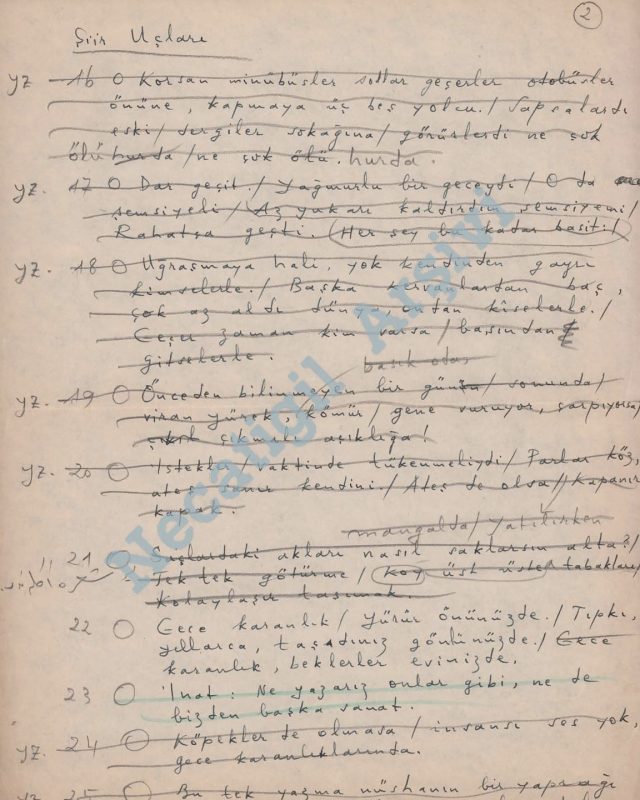 2
Şiir Uçları
yz 16 O Korsan minübüsler sollar geçerler otobüsler
önüne, kapmaya üç beş yolcu./ Sapsalardı
eski/ dergiler sokağına/ görürlerdi ne çok
ölü hurda/ne çok ölü. hurda.
yz. 17 O Dar geçit./ Yağmurlu bir geceydi/ O da
şemsiyeli/ Az yukarı kaldırdın şemsiyeni/
Rahatça geçti. (Her şey bu kadar basit!)
yz. 18 O Uğraşmaya hali, yok kendinden gayrı
kimselerle./ Başka kervanlardan baç,
çok az aldı dünya, ondan kiselerle./
Geçer zaman kim varsa/ başından
gitselerle.
basık oda
yz. 19 O Önceden bilinmeyen bir günün/ sonunda/
viran yürek, kömür/ gene vuruyor, çarpıyorsa/
çıkmalı açıklığa!
yz. 20 O İstekler/ vaktinde tükenmeliydi/ Parlar köz,
ateş sanır kendini./ Ateş de olsa/ Kapanır
kapak.
mangalda/ yatılırken
21 O akları nasıl saklarsın alta?/
Tek tek götürme/ koy üst üste/ tabakları/
Kolaylaşır taşımak.
22 O Gece karanlık/ Yürür önünüzde./ Tıpkı,
yıllarca, taşıdınız gönlünüzde./ Gece
karanlık, beklerler evinizde.
23 O İnat: Ne yazarız onlar gibi, ne de
bizden başka sanat.
yz. 24 O Köpekler de olmasa/ insansı ses yok,
gece karanlıklarında.
yz 25 O Bu tek yazma nüshanın bir yaprağı
Necatigil Arşivi